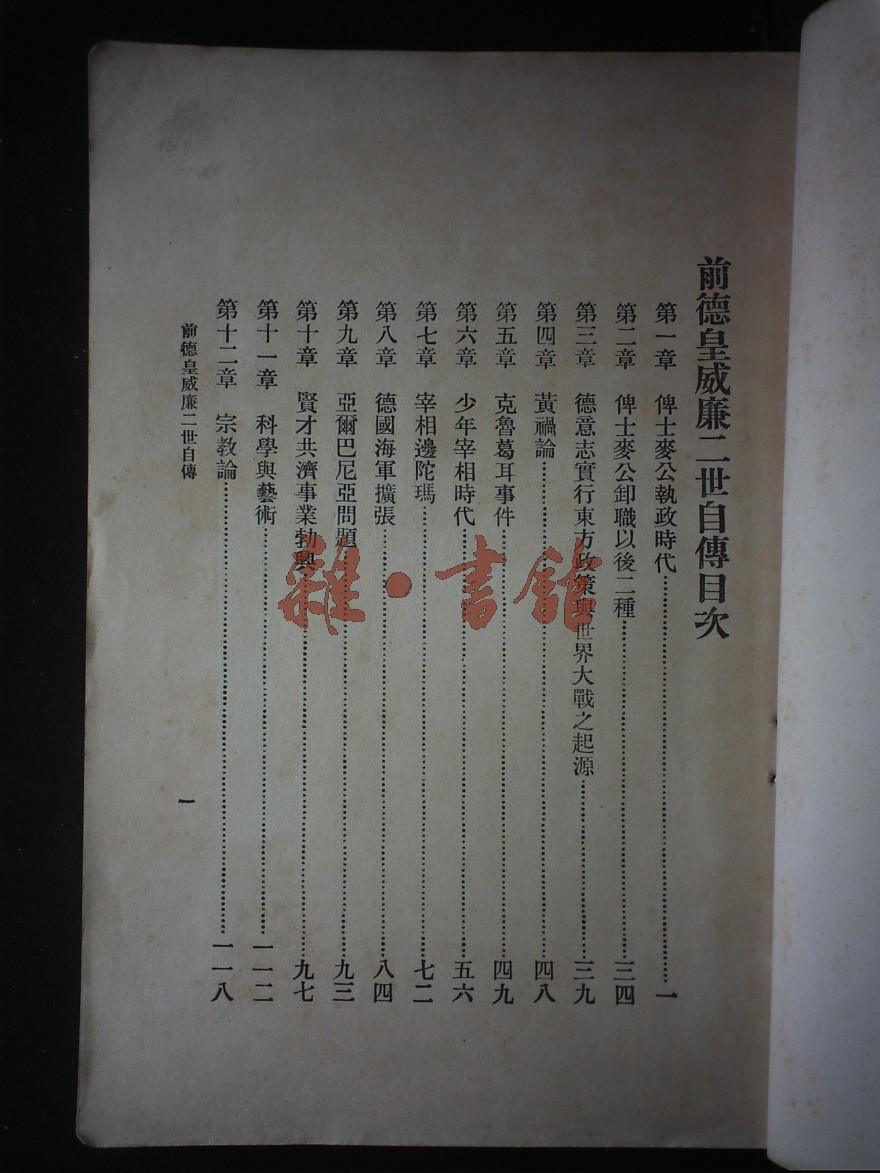 前德皇威廉二世自傳目次
第一章 俾士麥公執政時代……一
第二章 俾士麥公卸職以後二種……三四
第三章 德意志實行東方政策與世界大戰之起源……三九
第四章 黃禍論……四八
第五章 克魯葛耳事件……四九
第六章 少年宰相時代……五六
第七章 宰相邊陀瑪……七二
第八章 德國海軍擴張……八四
第九章 亞爾巴尼亞問題……九三
第十章 賢才共濟事業勃興……九七
第十一章 科學與藝術……一一二
第十二章 宗教論……一一八
前德皇威廉二世自傳
一
雜·書館